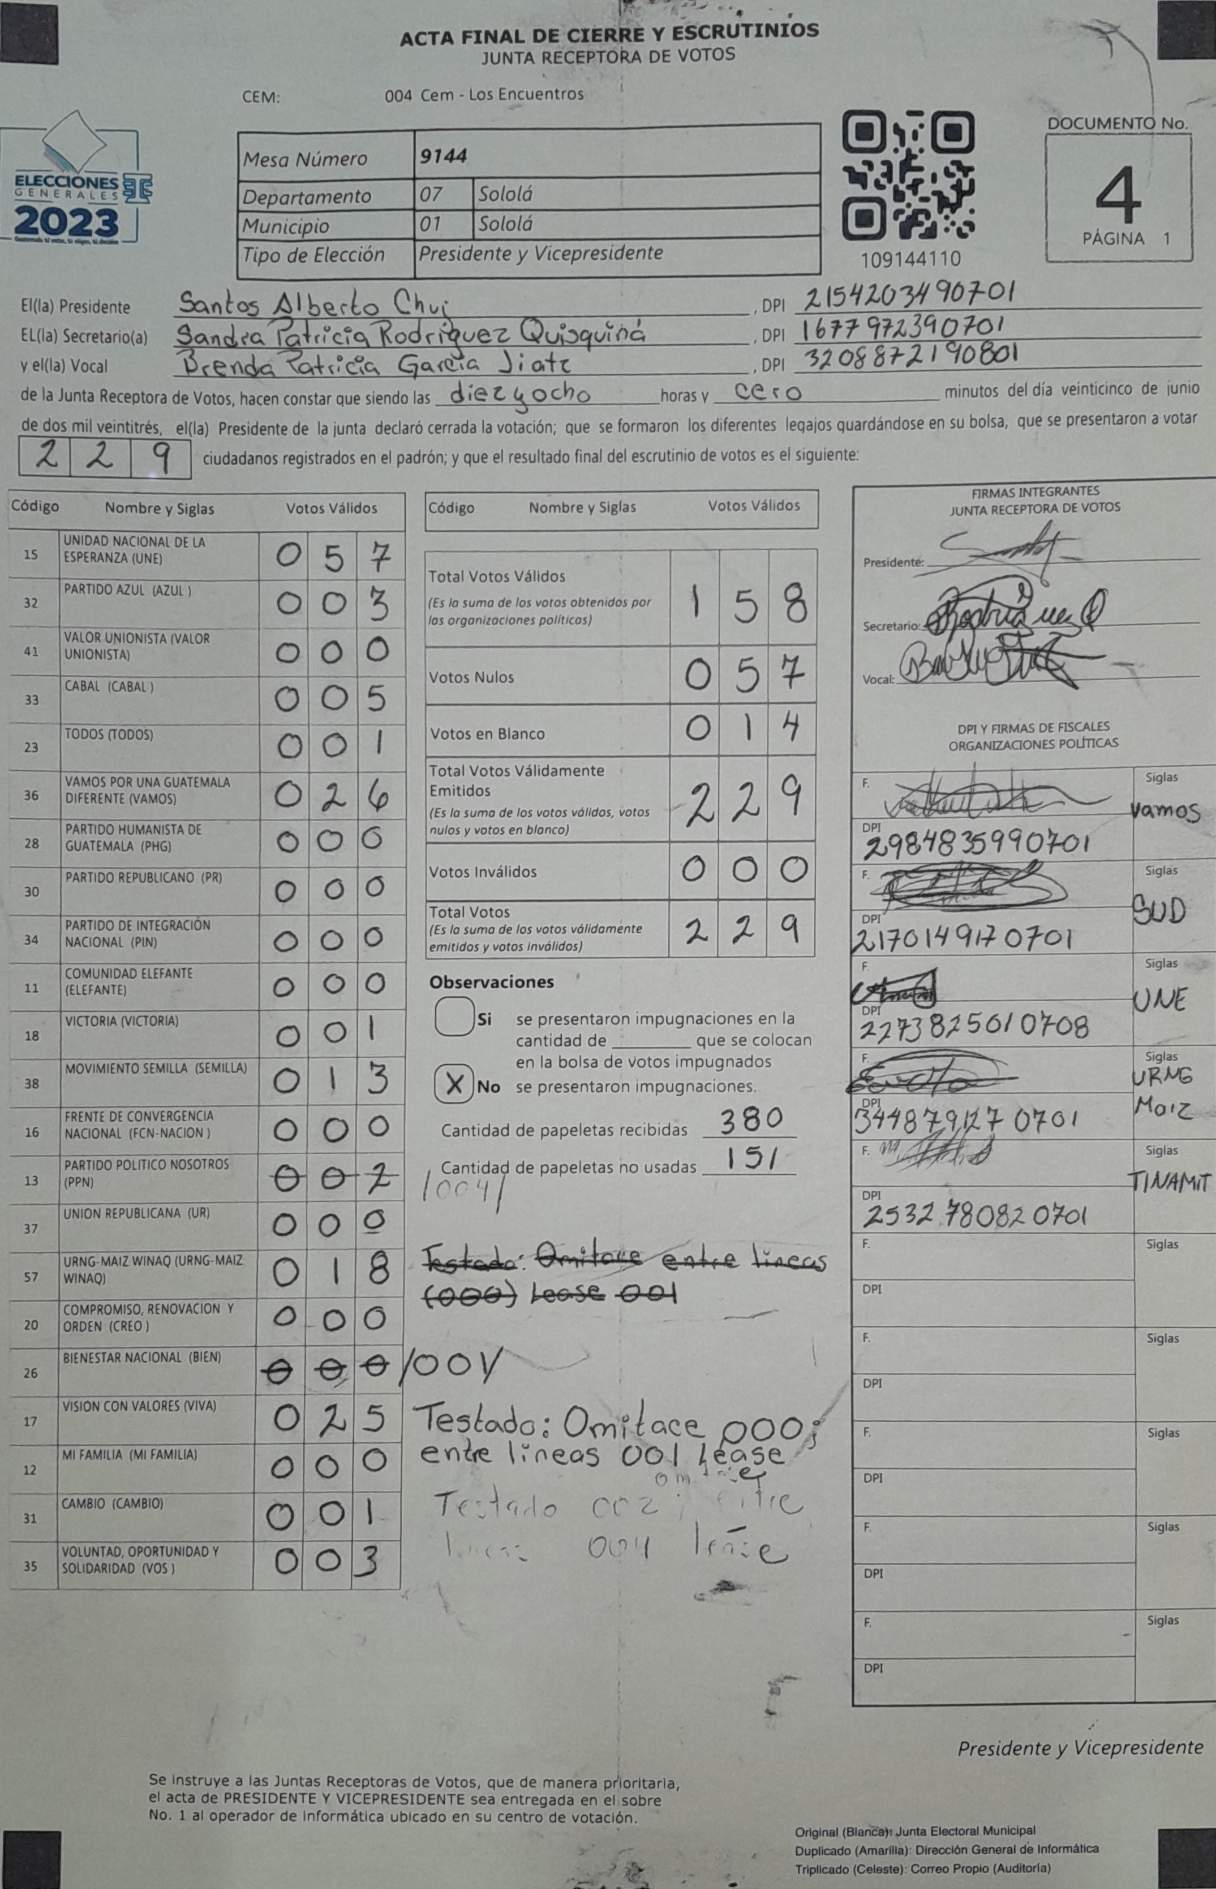 ACTA FINAL DE CIERRE Y ESCRUTINIOS
JUNTA RECEPTORA DE VOTOS
CEM: 004 Cem - Los Encuentros
ELECCIONES
GENERALES
2023
Mesa Número 9144
Departamento 07 Sololá
Municipio 01 Sololá
Tipo de Elección Presidente y Vicepresidente
109144110
DOCUMENTO No.
4
PÁGINA 1
El(la) Presidente Santos Alberto Chuj, DPI 2154203490701
EL(la) Secretario(a) Sandra Patricia Rodriguez Quisquiná, DPI 1677972390701
y el(la) Vocal Brenda Patricia García Jiatz, DPI 3208872190801
de la Junta Receptora de Votos, hacen constar que siendo las diez y ocho horas y cero minutos del día veinticinco de junio
de dos mil veintitrés, el(la) Presidente de la junta declaró cerrada la votación; que se formaron los diferentes legajos guardándose en su bolsa, que se presentaron a votar
229 ciudadanos registrados en el padrón; y que el resultado final del escrutinio de votos es el siguiente:
Código Nombre y Siglas Votos Válidos
15 UNIDAD NACIONAL DE LA ESPERANZA (UNE) 057
32 PARTIDO AZUL (AZUL ) 003
41 VALOR UNIONISTA (VALOR UNIONISTA) 000
33 CABAL (CABAL ) 005
23 TODOS (TODOS) 001
36 VAMOS POR UNA GUATEMALA DIFERENTE (VAMOS) 026
28 PARTIDO HUMANISTA DE GUATEMALA (PHG) 000
30 PARTIDO REPUBLICANO (PR) 000
34 PARTIDO DE INTEGRACIÓN NACIONAL (PIN) 000
11 COMUNIDAD ELEFANTE (ELEFANTE) 000
18 VICTORIA (VICTORIA) 001
38 MOVIMIENTO SEMILLA (SEMILLA) 013
16 FRENTE DE CONVERGENCIA NACIONAL (FCN-NACION ) 000
13 PARTIDO POLITICO NOSOTROS (PPN) 002 /004/
37 UNION REPUBLICANA (UR) 000
57 URNG-MAIZ WINAQ (URNG-MAIZ WINAQ) 018
20 COMPROMISO, RENOVACION Y ORDEN (CREO ) 000
26 BIENESTAR NACIONAL (BIEN) 000 /001/
17 VISION CON VALORES (VIVA) 025
12 MI FAMILIA (MI FAMILIA) 000
31 CAMBIO (CAMBIO) 001
35 VOLUNTAD, OPORTUNIDAD Y SOLIDARIDAD (VOS ) 003
Código Nombre y Siglas Votos Válidos
Total Votos Válidos 158
(Es la suma de los votos obtenidos por
las organizaciones políticas)
Votos Nulos 057
Votos en Blanco 014
Total Votos Válidamente
Emitidos 229
(Es la suma de los votos válidos, votos
nulos y votos en blanco)
Votos Inválidos 000
Total Votos 229
(Es la suma de los votos válidamente
emitidos y votos inválidos)
Observaciones
Si se presentaron impugnaciones en la
cantidad de ________ que se colocan
en la bolsa de votos impugnados
X No se presentaron impugnaciones.
Cantidad de papeletas recibidas 380
Cantidad de papeletas no usadas 151
Testado: Omitace entre lineas
(000) Lease 001
Testado: Omitace 000;
entre lineas 001 Léase
Testado 002; omitace entre
lineas 004 léase
FIRMAS INTEGRANTES
JUNTA RECEPTORA DE VOTOS
Presidente:
Secretario:
Vocal:
DPI Y FIRMAS DE FISCALES
ORGANIZACIONES POLÍTICAS
F. Siglas
Vamos
DPI
2984835990701
F. Siglas
SUD
DPI
2170149170701
F. Siglas
UNE
DPI
2273825610708
F. Siglas
URNG
Maiz
DPI
3448791270701
F. Siglas
TINAMIT
DPI
2532780820701
F. Siglas
DPI
F. Siglas
DPI
F. Siglas
DPI
F. Siglas
DPI
F. Siglas
DPI
Presidente y Vicepresidente
Se instruye a las Juntas Receptoras de Votos, que de manera prioritaria,
el acta de PRESIDENTE Y VICEPRESIDENTE sea entregada en el sobre
No. 1 al operador de informática ubicado en su centro de votación.
Original (Blanca): Junta Electoral Municipal
Duplicado (Amarilla): Dirección General de Informática
Triplicado (Celeste): Correo Propio (Auditoría)